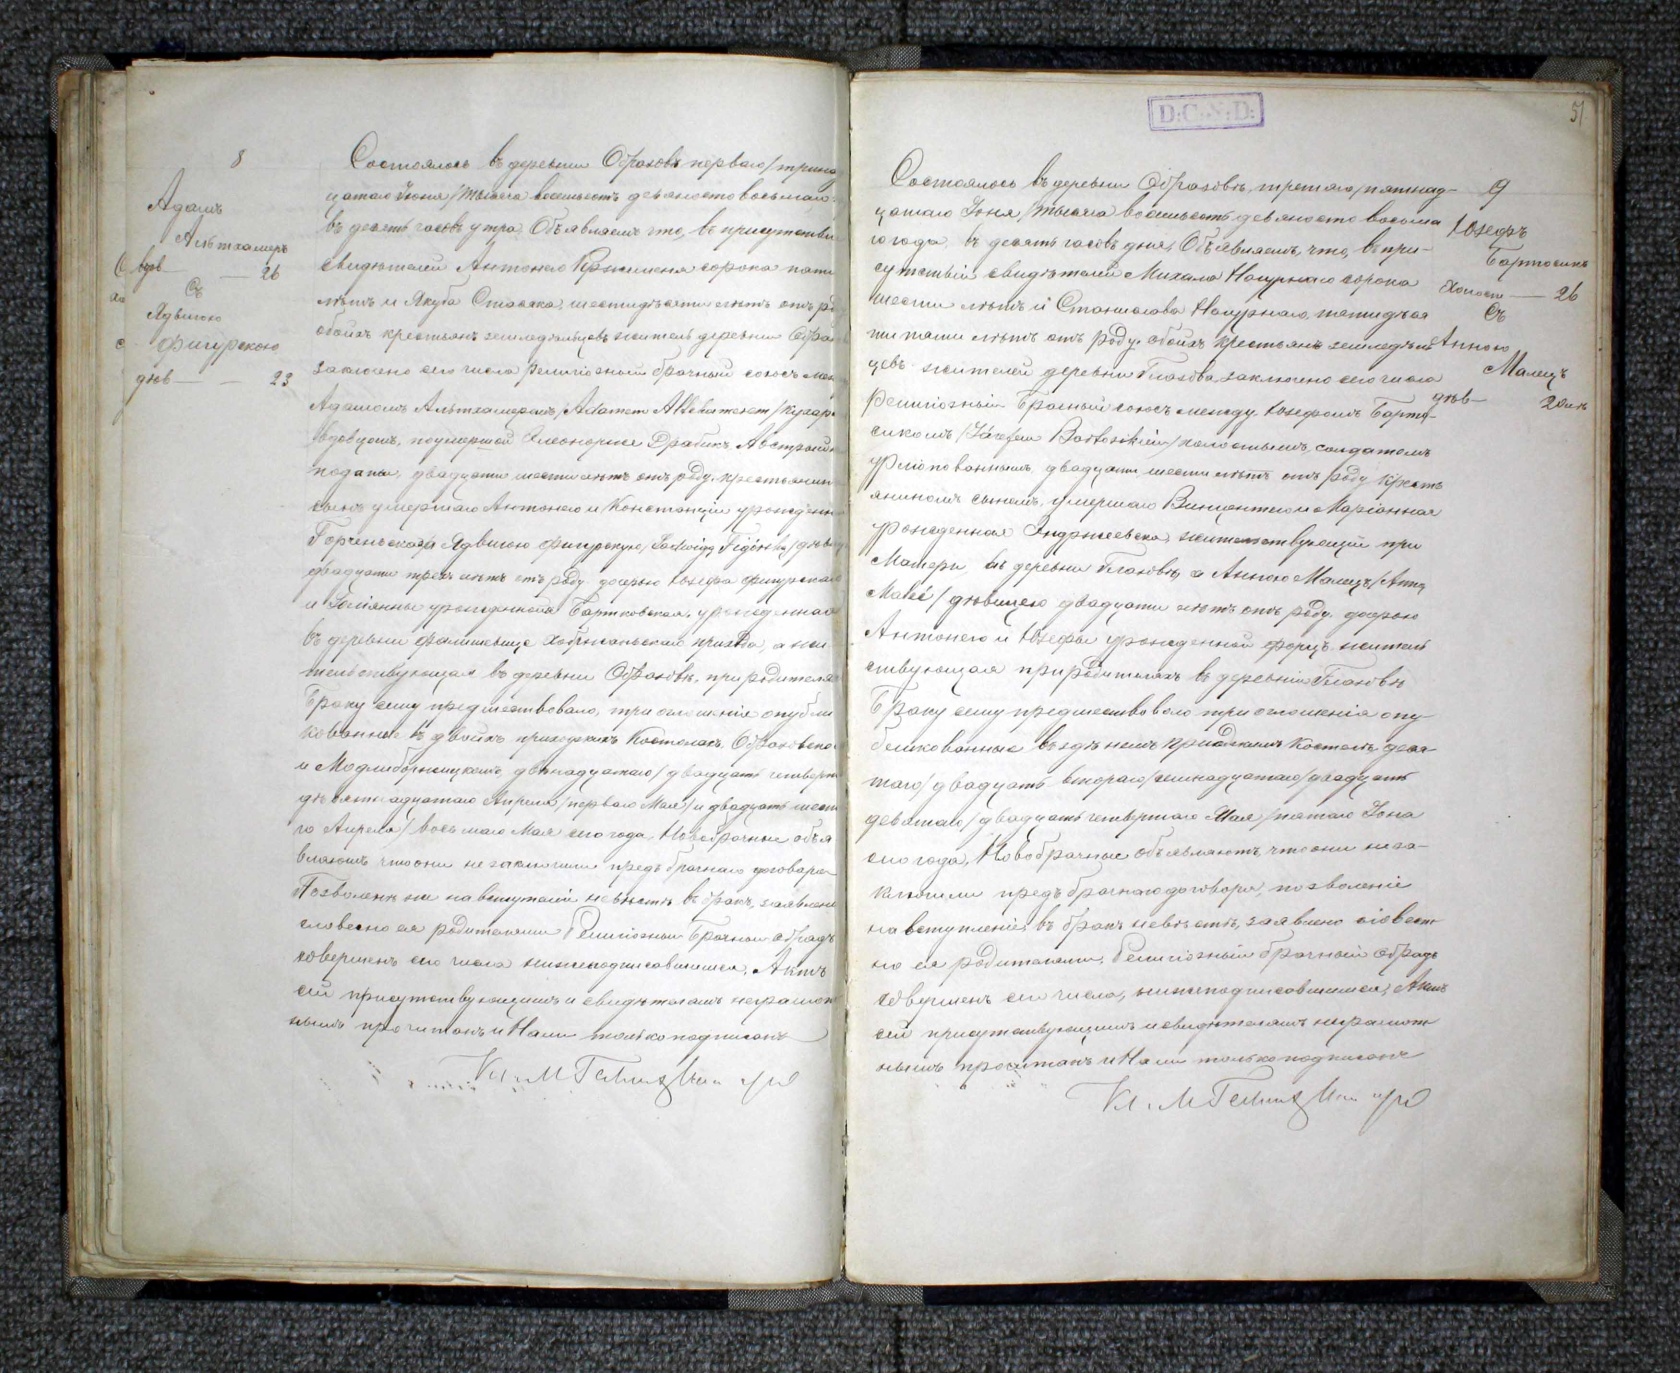 8
Адамъ
Альтхамеръ
вдв — 26
Съ
Ядвигою
Фигурскою
двв — 23
Состоялось въ деревни Образовѣ перваго/трина
цатаго Іюня/тысяча восемьсотъ девяносто восьмаго
въ десять часовъ утра. Объявляемъ что, въ присутствіи
свидѣтелей Антонего сорока пяти
лѣтъ и Якуба Стасяка, шестидѣсяти лѣтъ отъ ро
обоихъ крестьянъ земледѣльцевъ жителей деревни Образ
заключено сего числа религіозный брачный союзъ меж
Адамомъ Альтхамеромъ/Adamem Althamerem/кухар
вдовцомъ, по умершой Элеонорше Драбикъ Австрійск
подданы, двадцати шести лѣтъ отъ роду, крестьянин
сынъ умершаго Антонего и Констанціи урожденн
Ядвигою Фигурскую/Jadwigą Figurską/дѣви
двадцати трехъ лѣтъ отъ роду, дочерью Юзефа Фигурскаго
и Юліянны урожденной Бартковская, урожденная
въ деревни Фалишевице Хобржаньскаго прихода, а жи
тельствующая въ деревни Образовѣ, при родителях
Браку сему предшествовало, три оглашенія опубли
кованные въ двоихъ приходскихъ Костелахъ Образовском
и Модлиборжицкемъ, двѣнадцатаго/двадцать четверт
девятнадцатаго Апреля/перваго Мая/и двадцать шест
го Апреля/восьмаго Мая сего года. Новобрачные объя
вляютъ что они не заключили предъ брачнаго договора
Позволеніе на вступленій невѣстѣ въ бракъ, заявлено
словесно ея родителями. Религіозный Брачный обрядъ
совершенъ сего числа нижеподписавшимся. Актъ
сей присутствующимъ и свидѣтелямъ неграмот
нымъ прочитанъ и Нами только подписанъ
D:C:N:D:
51
Состоялось въ деревни Образовѣ, третяго/пятнад-
цатаго Іюня/тысяча восемьсотъ девяносто восьма
го года, въ десять часовъ дня, Объявляемъ, что, въ при-
сутствіи свидѣтелей Михала Нагурнаго сорока
шести лѣтъ и Станислава Нагурнаго, пятидѣся
ти пяти лѣтъ отъ роду, обоихъ крестьянъ земледѣль
цевъ жителей деревни Глазова, заключено сего числа
религіозный Брачный союзъ между Юзефомъ Барто-
сикомъ/Józefem Bartosikiem/холостымъ, солдатомъ
урлюпованнымъ, двадцати шести лѣтъ отъ роду, крест
яниномъ сынемъ, умершаго Винцентего и Маріанная
урожденная Андржеевска, жительствующій при
Матери, въ деревни Глазовѣ, а Анною Малецъ/Anną
Malec/дѣвицею двадцати лѣтъ отъ роду, дочерью
Антонего и Юзефы урожденной Форцъ, житель
ствующая при родителяхъ въ деревніи Глазовѣ
Браку сему предшествовало три оглашенія опу-
бликованные въ здѣшнемъ приходскимъ Костелѣ, деся-
таго/двадцать втораго/семнадцатаго/двадцать
девятаго/двадцать четвертаго Мая/пятаго Іюня
сего года, Новобрачные объявляютъ, что они не за-
ключили предъ брачнаго договора, позволеніе
на вступленіе въ бракъ невѣстѣ, заявлено словест
но ея родителями. Религіозный брачный обрядъ
совершенъ сего числа, нижеподписавшимся, Актъ
сей присутствующимъ и свидѣтелямъ неграмот
нымъ прочитанъ и Нами только подписанъ
9
Юзефъ
Бартосикъ
Холост — 26
Съ
Анною
Малецъ
дѣв — 20